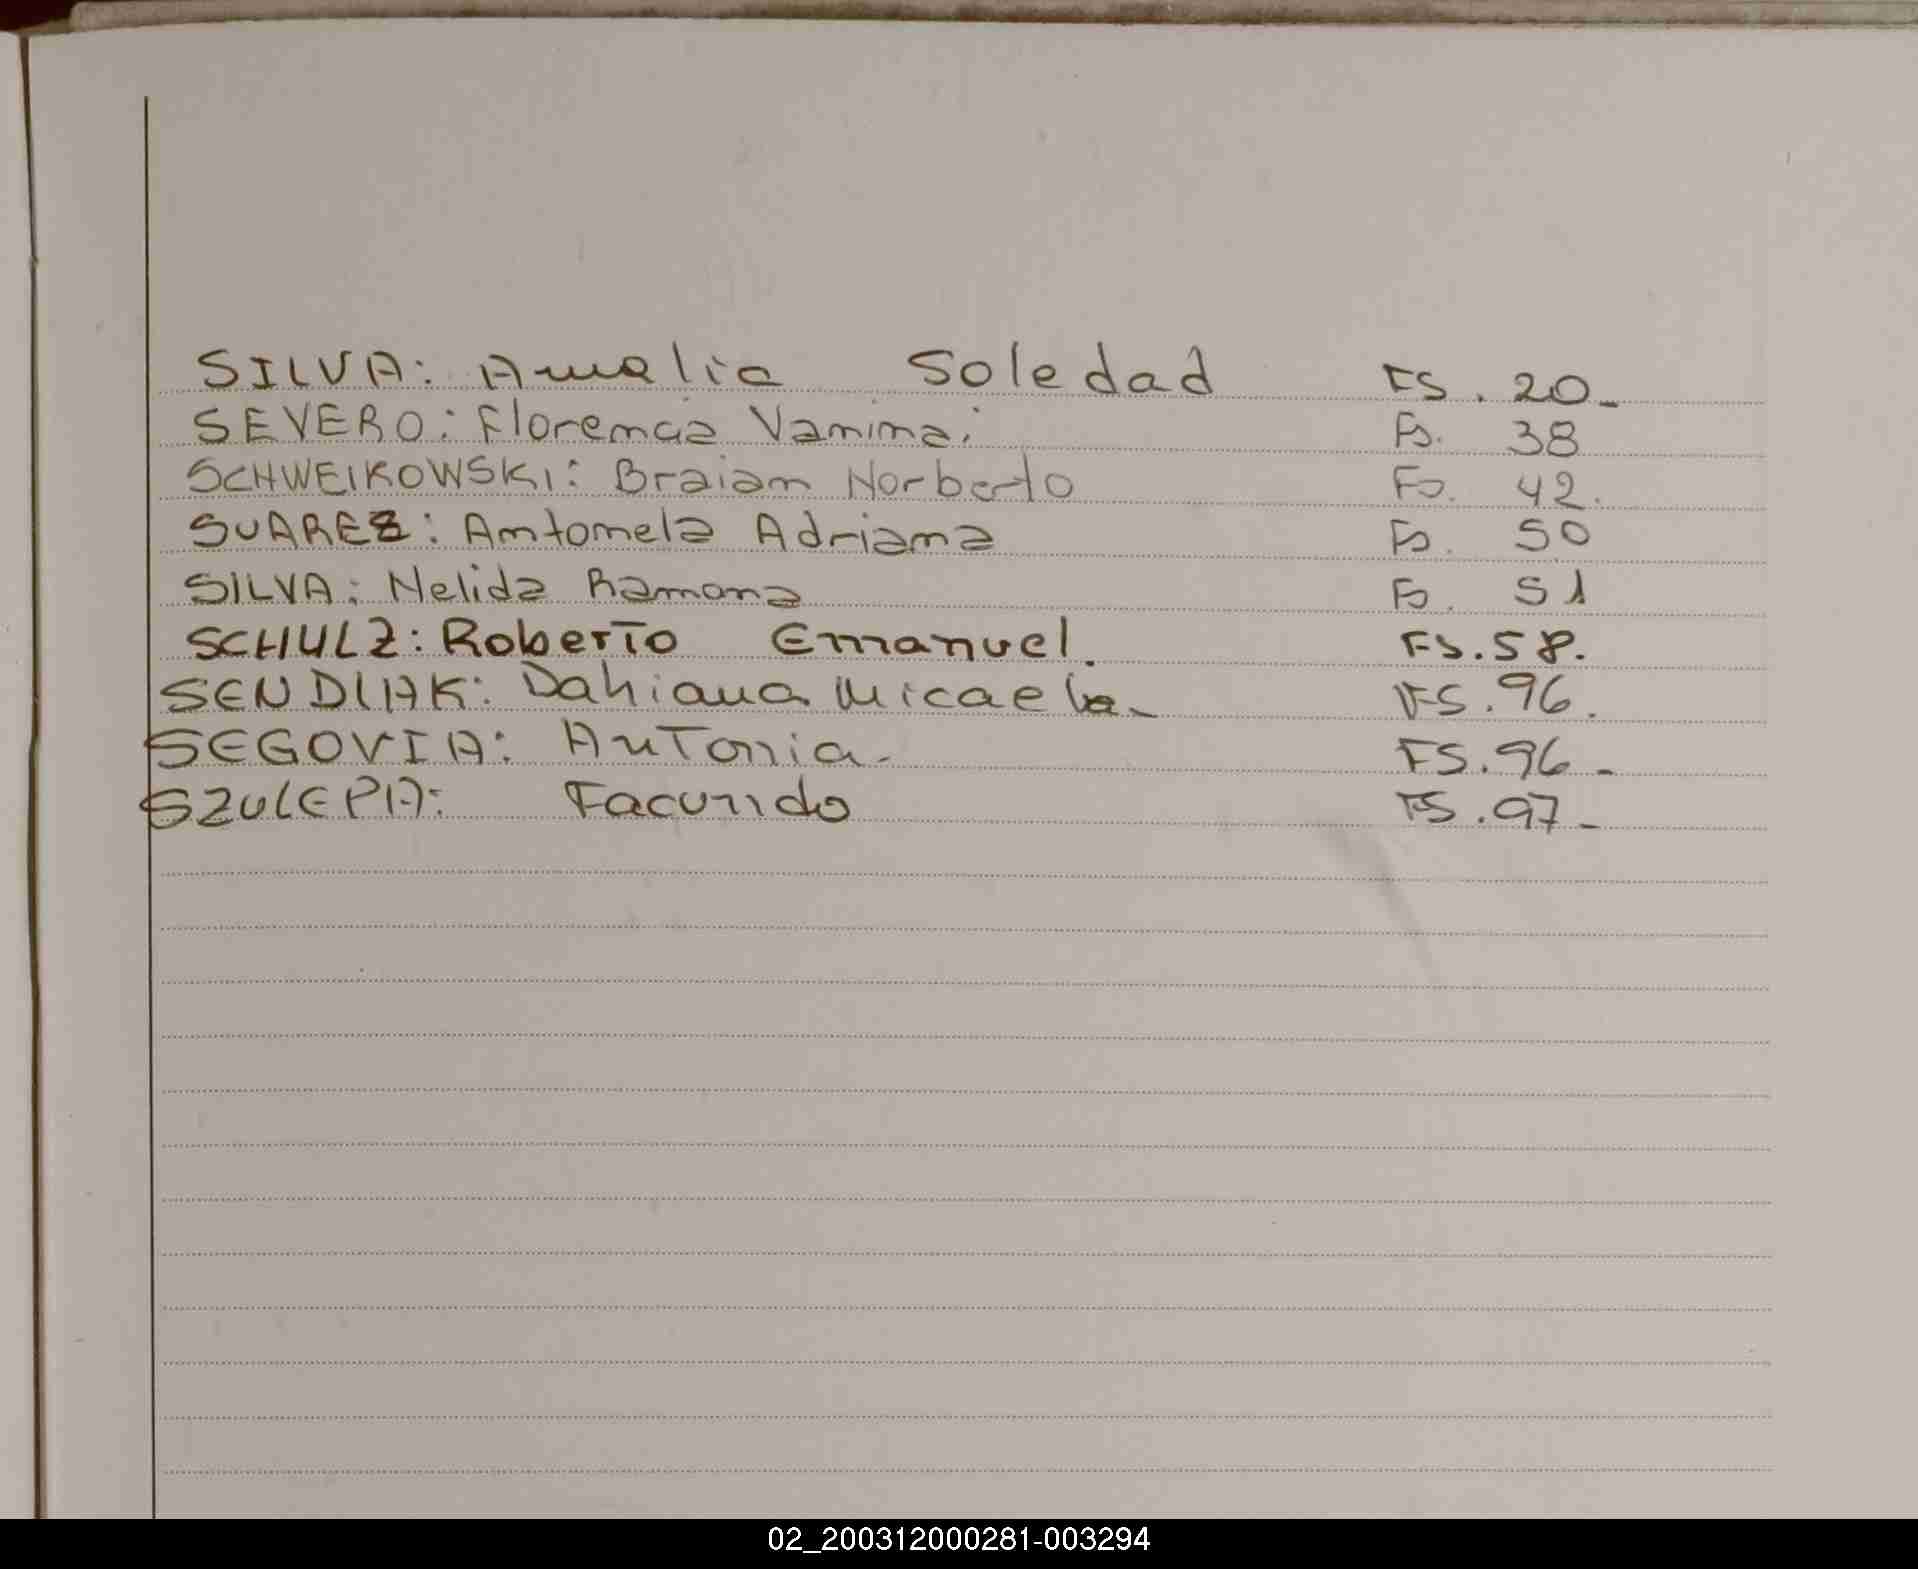 SILVA: Amalia Soledad FS. 20_
SEVERO: Florencia Vanina. Fs. 38
SCHWEIKOWSKI: Braian Norberto Fs. 42.
SUAREZ: Antonela Adriana Fs. 50
SILVA: Nelida Ramona Fs. 51
SCHULZ: Roberto Emanuel. Fs. 58.
SENDIAK: Dahiana Micaela_ FS. 96.
SEGOVIA: Antonia_ FS. 96_
SZULEPA: Facundo FS. 97_
02_200312000281-003294